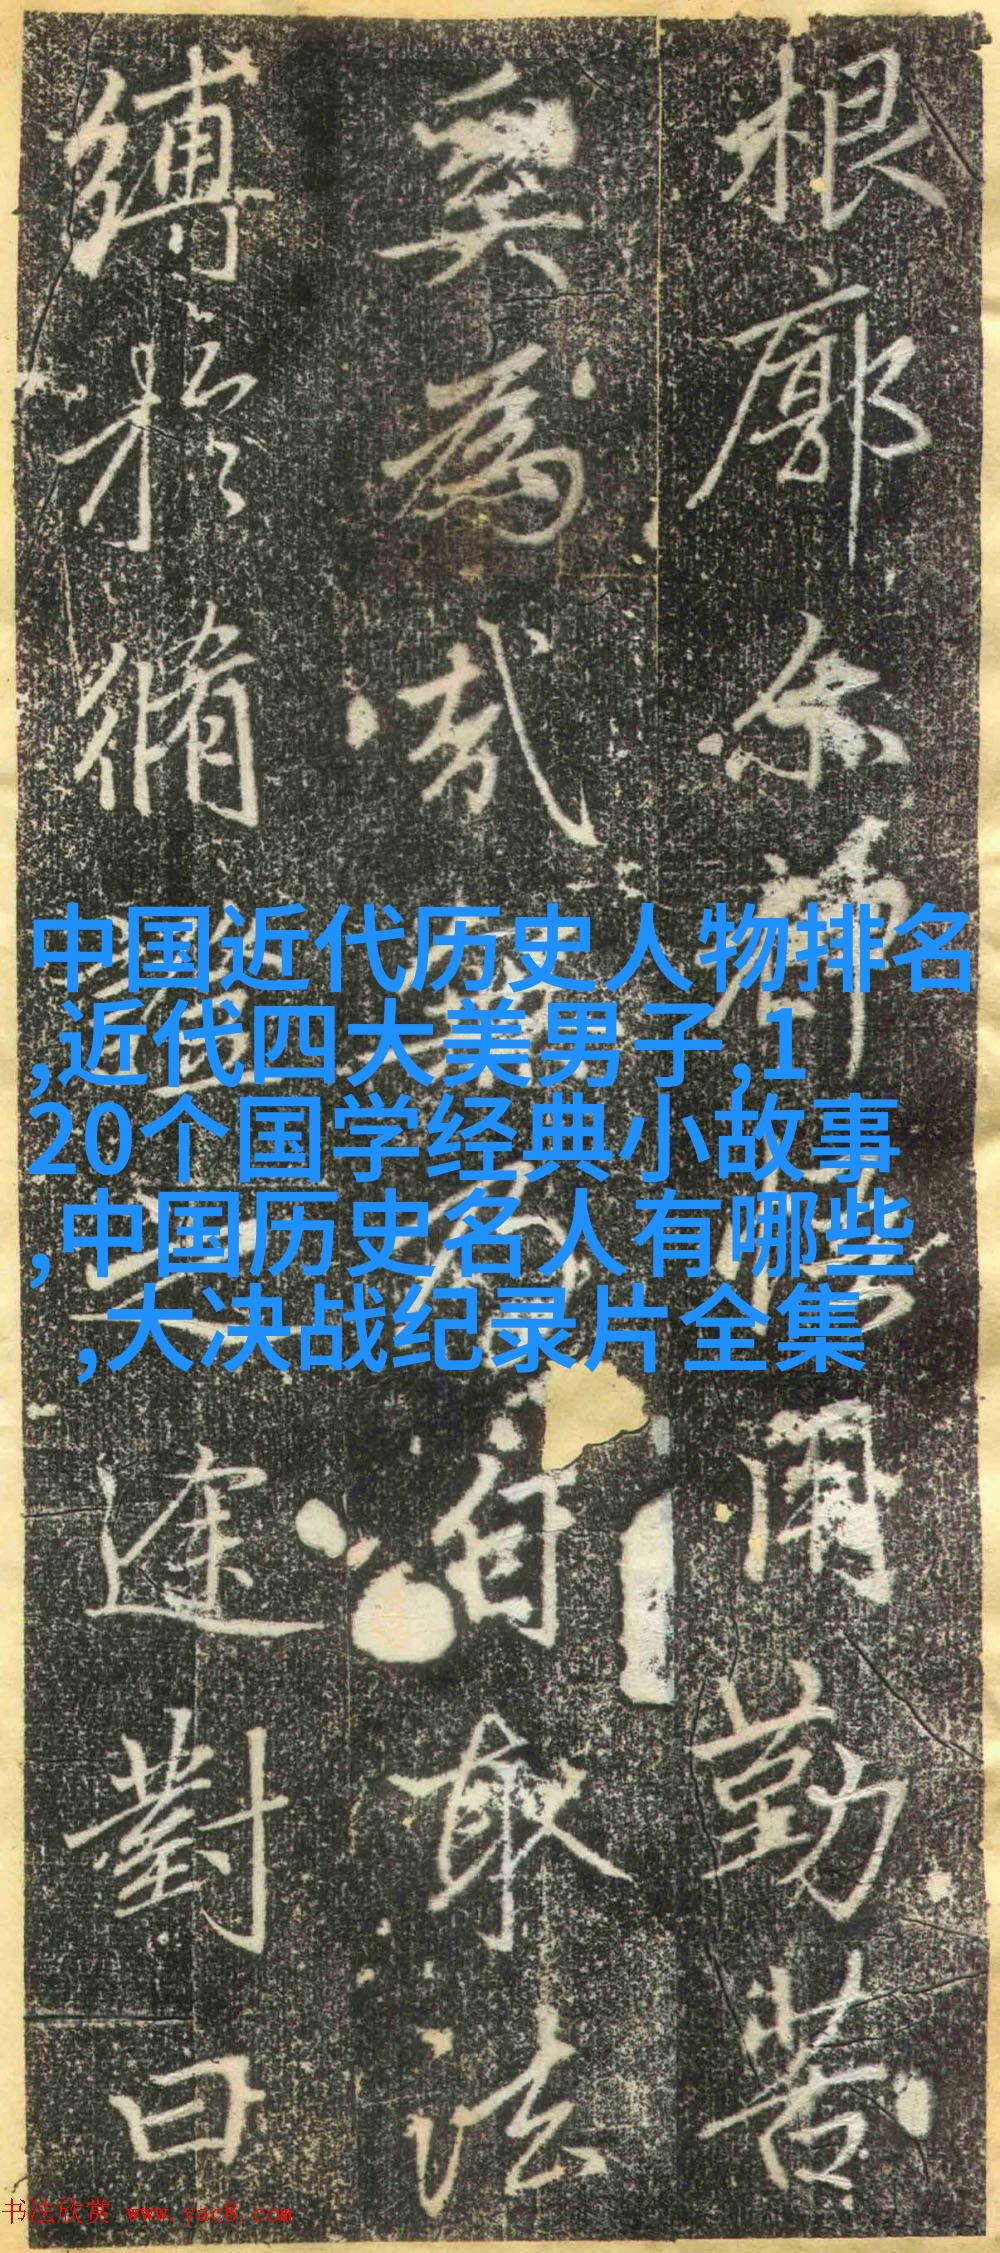 根廓尔神用勤苦
奚為哉自取法
縛於脩證之途對曰
中国近代历史人物排名
,近代四大美男子,1
20个国学经典小故事
,中国历史名人有哪些
,大决战纪录片全集
书法欣赏 www.yac8.com